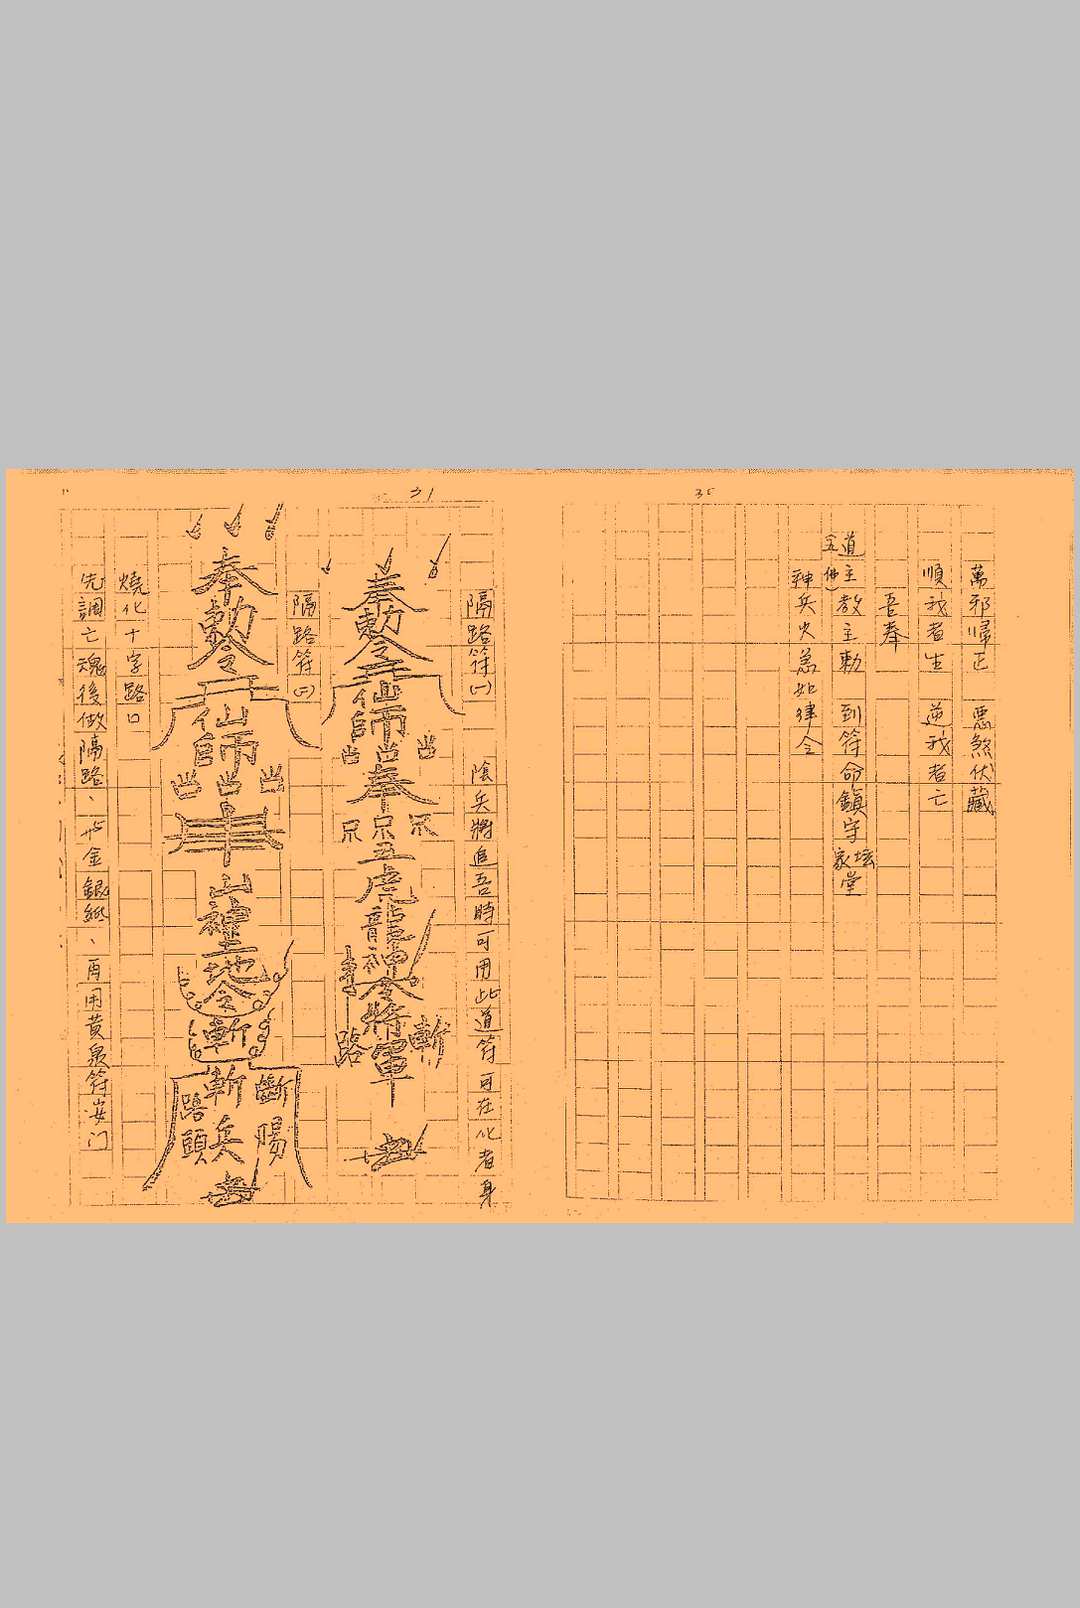 35
萬邪歸正 惡煞伏藏
順我者生 逆我者亡
吾奉
道主教主勅 到符命鎮守 家堂 坛
神兵火急如律令
31
隔路符(一) 陰兵將追吾時可用此道符可在化者身
奉勅令仙師奉五虎龍神令將軍
斬
路
隔路符(二)
奉勅令
仙師
山神土地令斬
斬兵
斷陽
路頭
燒化十字路口
先調亡魂後做隔路、火金銀紙、再用黃泉符安门